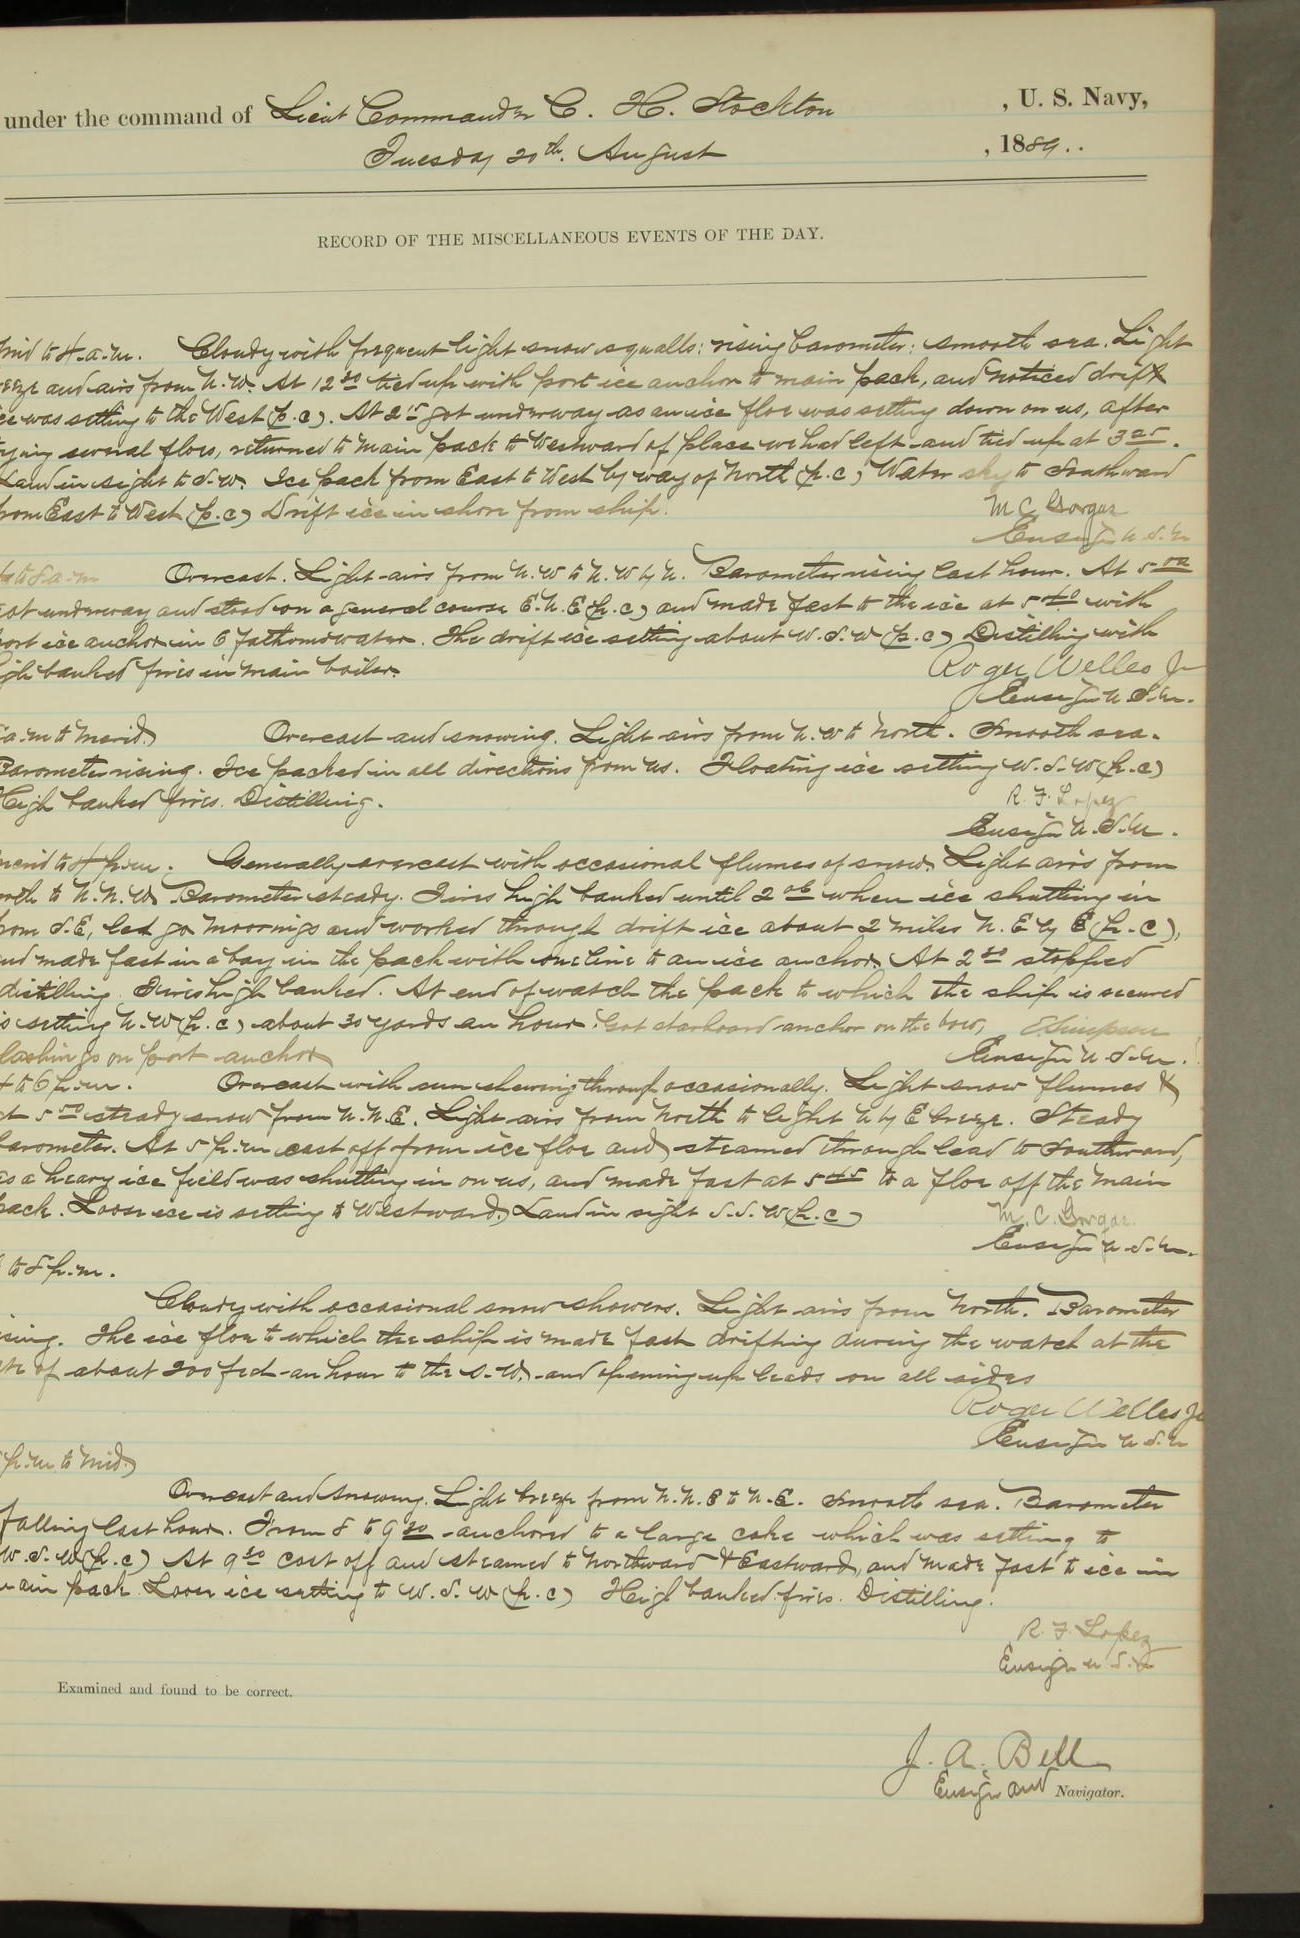 under the command of Lieut Commander C. H. Stockton , U. S. Navy,
Tuesday 20th. August , 1889..
RECORD OF THE MISCELLANEOUS EVENTS OF THE DAY.
mid to 4. a.m. Cloudy with frequent light snow squalls: rising barometer: smooth sea. Light
reeze and airs from N.W. At 12 30 tied up with port ice anchor to main pack, and noticed drift
ce was setting to the West (p.c). At 2 15 got underway as an ice floe was setting down on us, after
rying several floes, returned to main pack to Westward of place we had left and tied up at 3 25.
Land in sight to S.W. Ice pack from East to West by way of North (p.c) Water sky to Southward
from East to West (p.c) Drift ice in shore from ship.
M C Gorgas
Ensign U.S.N
4 to 8 a.m Overcast. Light airs from N.W to N.W by N. Barometer rising last hour. At 5 00
got underway and stood on a general course E.N.E (p.c) and made fast to the ice at 5 40 with
port ice anchor in 6 fathoms water. The drift ice setting about W.S.W (p.c) Distilling with
igh banked fires in main boiler.
Roger Welles Jr
Ensign U.S.N.
a.m to merid. Overcast and snowing. Light airs from N.W to North. Smooth sea.
Barometer rising. Ice packed in all directions from us. Floating ice setting W.S.W (p.c)
High banked fires. Distilling.
R. F. Lopez
Ensign U.S.N.
merid to 4 p.m. Generally overcast with occasional flumes of snow. Light airs from
orth to N.N.W. Barometer steady. Fires high banked until 2 06 when ice shutting in
from S.E, let go moorings and worked through drift ice about 2 miles N.E by E (p.c),
nd made fast in a bay in the pack with one line to an ice anchor. At 2 40 stopped
distilling. Fires high banked. At end of watch the pack to which the ship is secured
is setting N.W (p.c) about 30 yards an hour. Got starboard anchor on the bow,
E Simpson
lashings on port anchor
Ensign U.S.N.
4 to 6 p.m. Overcast with sun shewing through occasionally. Light snow flumes &
at 5 50 steady snow from N.N.E. Light airs from North to light N by E breeze. Steady
barometer. At 5 p.m cast off from ice floe and steamed through lead to Southward,
as a heavy ice field was shutting in on us, and made fast at 5 45 to a floe off the main
pack. Loose ice is setting to Westward. Land in sight S.S.W (p.c)
M. C. Gorgas.
Ensign U.S.N.
to 8 p.m.
Cloudy with occasional snow showers. Light airs from North. Barometer
ising. The ice floe to which the ship is made fast drifting during the watch at the
ate of about 200 feet an hour to the S.W. and opening up leads on all sides
Roger Welles Jr
Ensign U.S.N
p.m to mid.
Overcast and snowing. Light breeze from N.N.E to N.E. Smooth sea. Barometer
falling last hour. From 8 to 9 30 anchored to a large cake which was setting to
W.S.W (p.c) At 9 30 cast off and steamed to Northward & Eastward, and made fast to ice in
main pack. Loose ice setting to W.S.W (p.c) High banked fires. Distilling.
R. F. Lopez
Ensign U.S.N
Examined and found to be correct.
J. A. Bell
Ensign and Navigator.